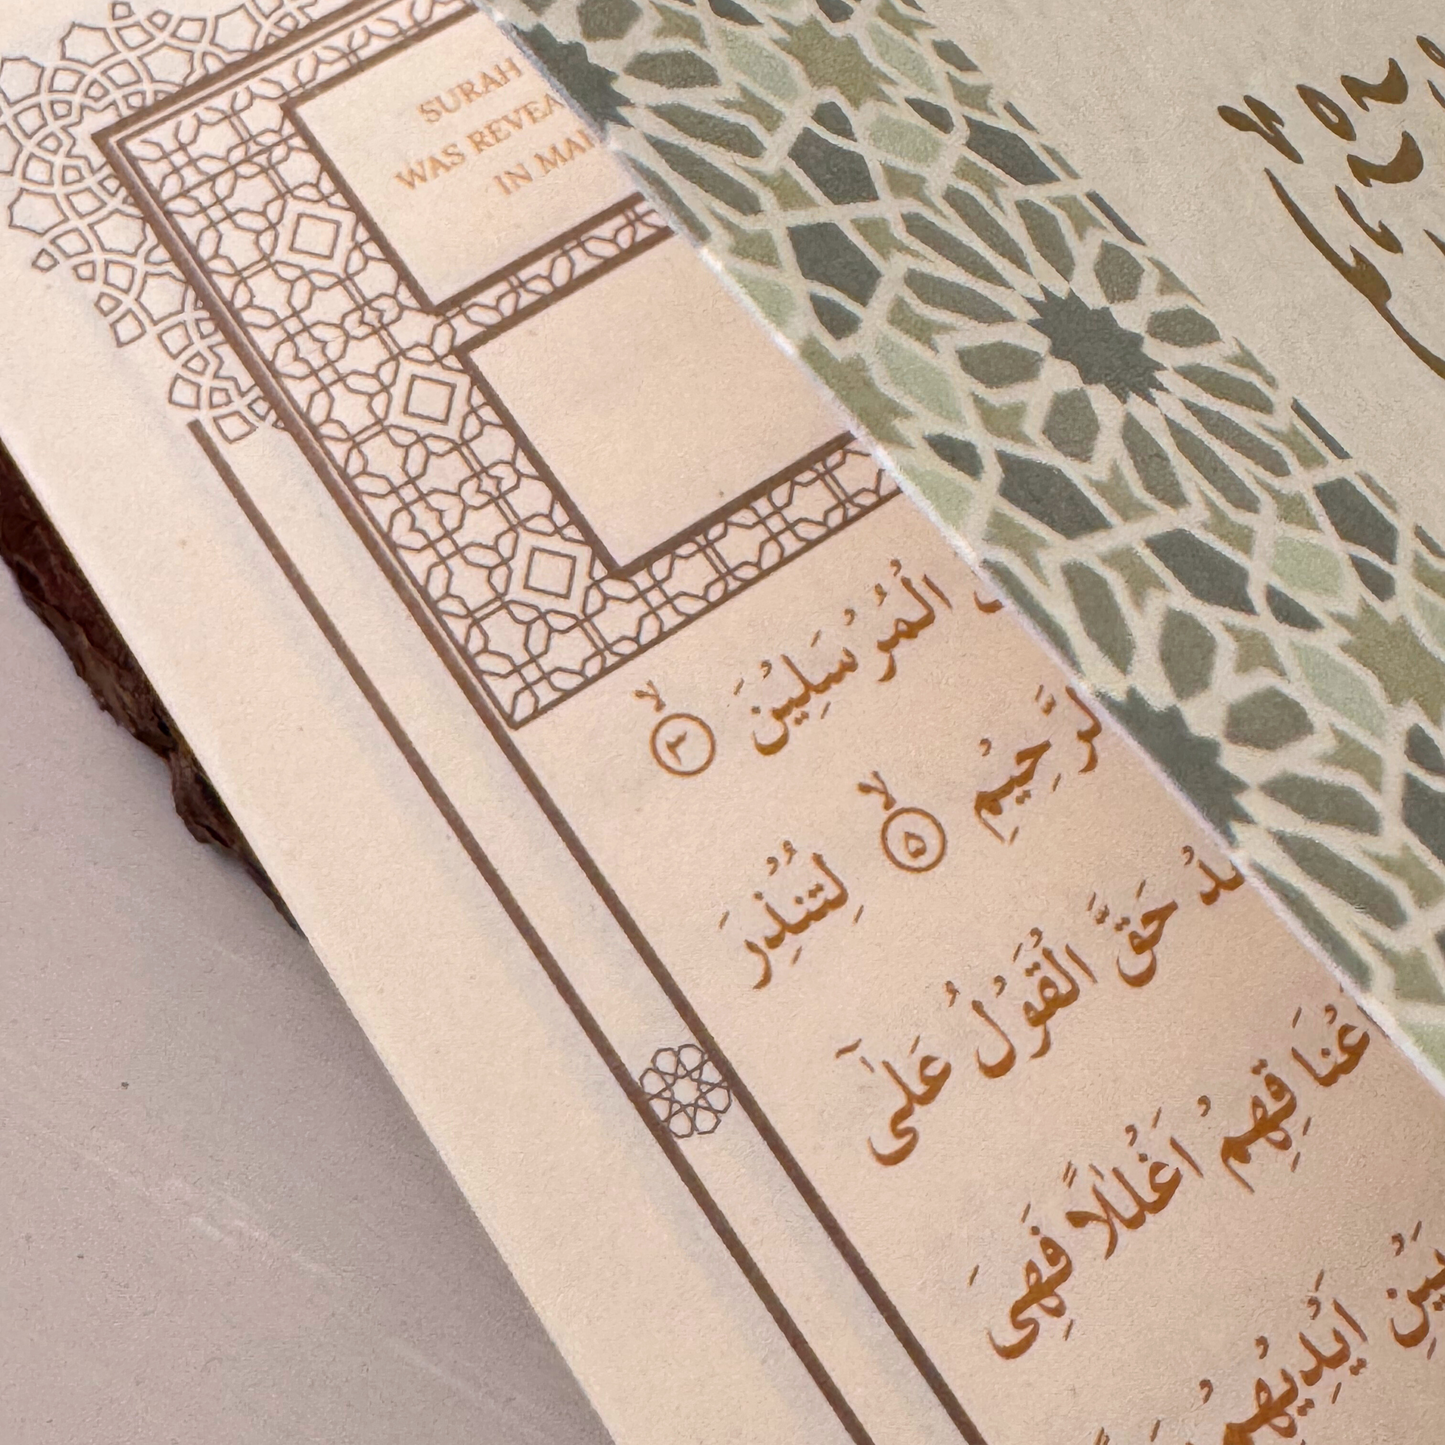 SURAH
WAS REVEA
IN MA
الْمُرْسَلِيْنَ ۙ﴿۳﴾
الرَّحِيْمِ ۙ﴿۵﴾ لِتُنْذِرَ
حَقَّ الْقَوْلُ عَلٰۤى
عْنَاقِهِمْ اَغْلٰلًا فَهِىَ
بَيْنِ اَيْدِيْهِمْ